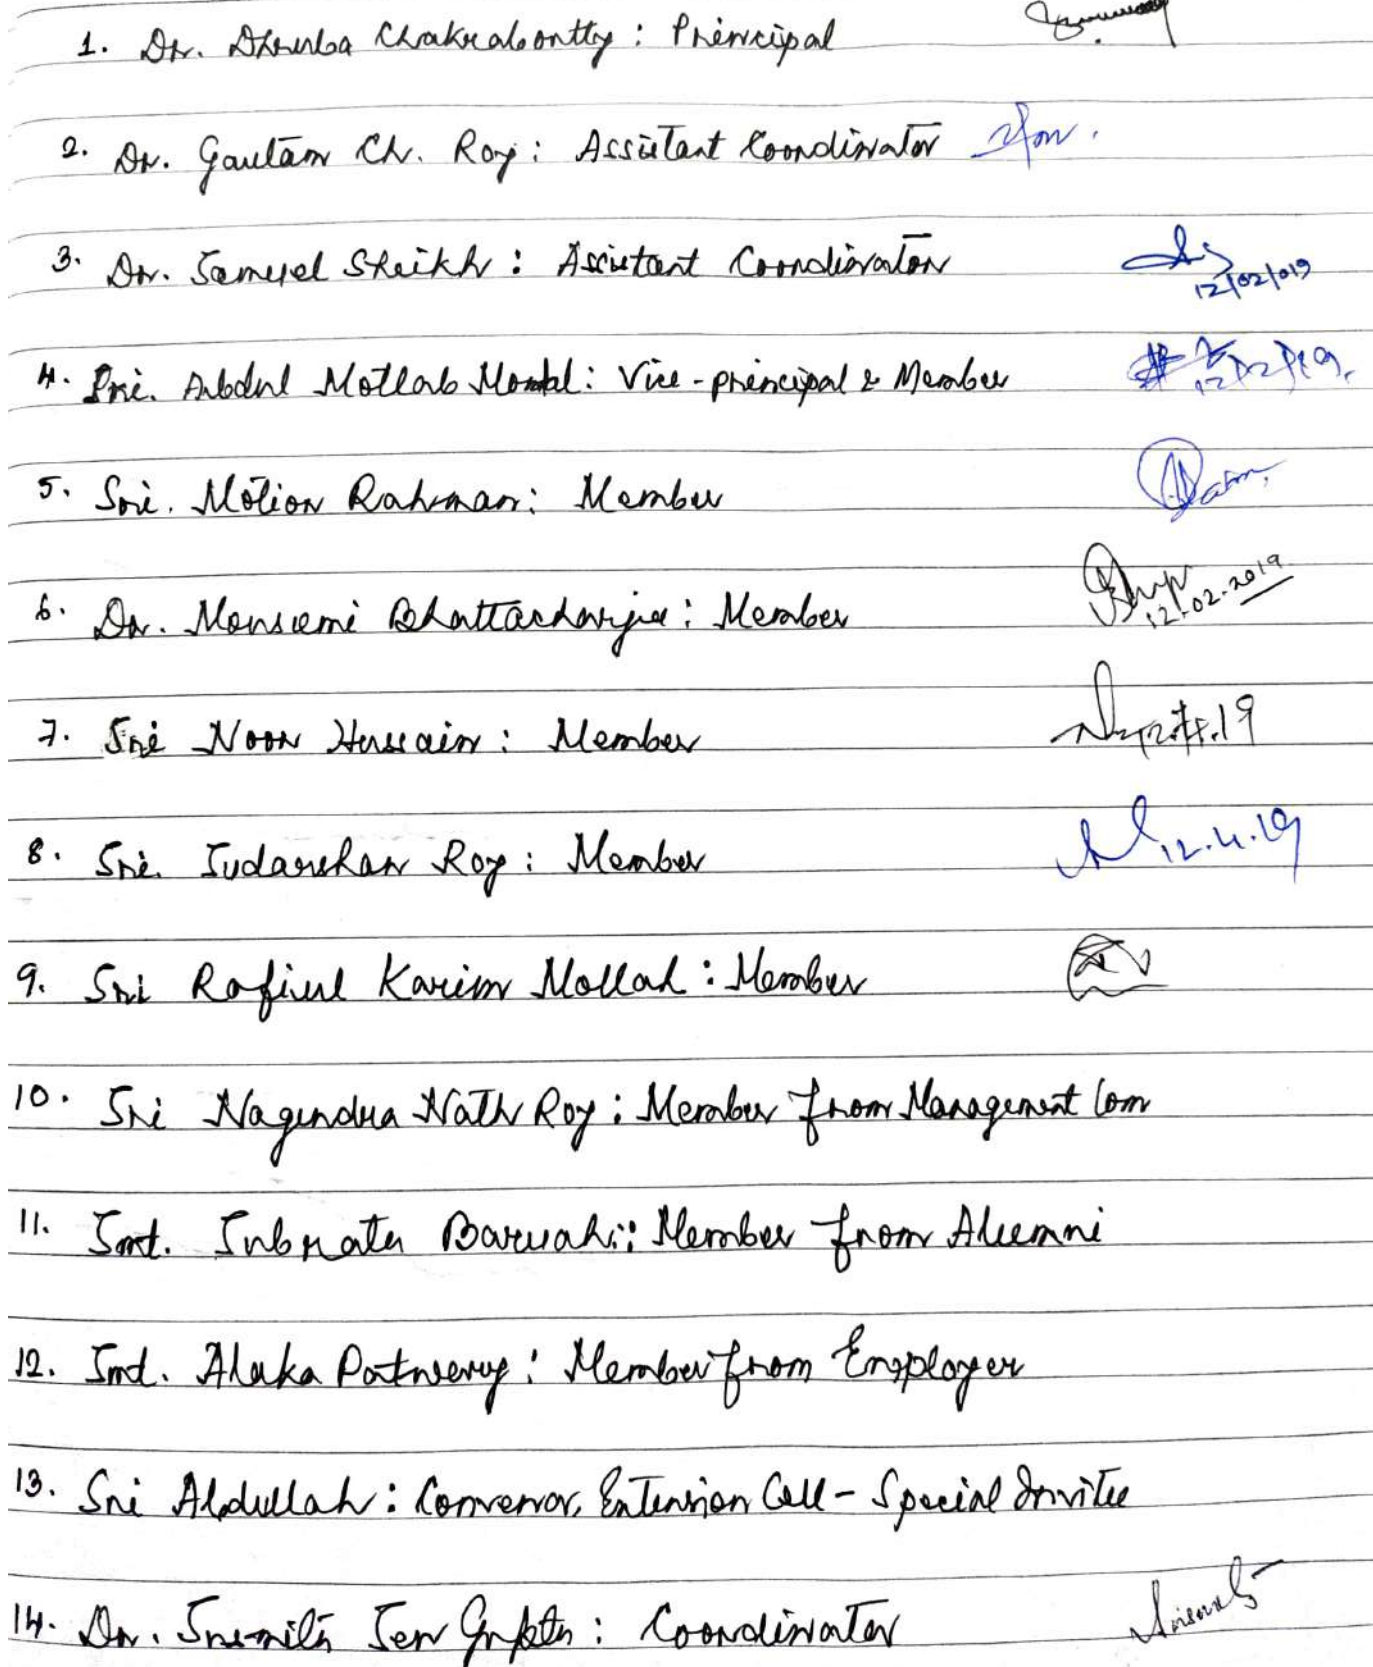 1. Dr. Dhruba Chakraborty : Principal
2. Dr. Gautam Ch. Roy : Assistant Coordinator
3. Dr. Samuel Sheikh : Assistant Coordinator 12/02/019
4. Sri. Abdul Motleb Mondal : Vice-principal & Member
5. Sri. Motior Rahman : Member
6. Dr. Mousumi Bhattacharjee : Member 12.02.2019
7. Sri Noor Hussain : Member
8. Sri. Sudarshan Roy : Member 12.4.19
9. Sri Rafiul Karim Mollah : Member
10. Sri Nagendra Nath Roy : Member from Management Com
11. Smt. Subrata Baruah : Member from Alumni
12. Smt. Alaka Patwary : Member from Employer
13. Sri Abdullah : Convenor, Extension Cell - Special Invitee
14. Dr. Sen Gupta : Coordinator